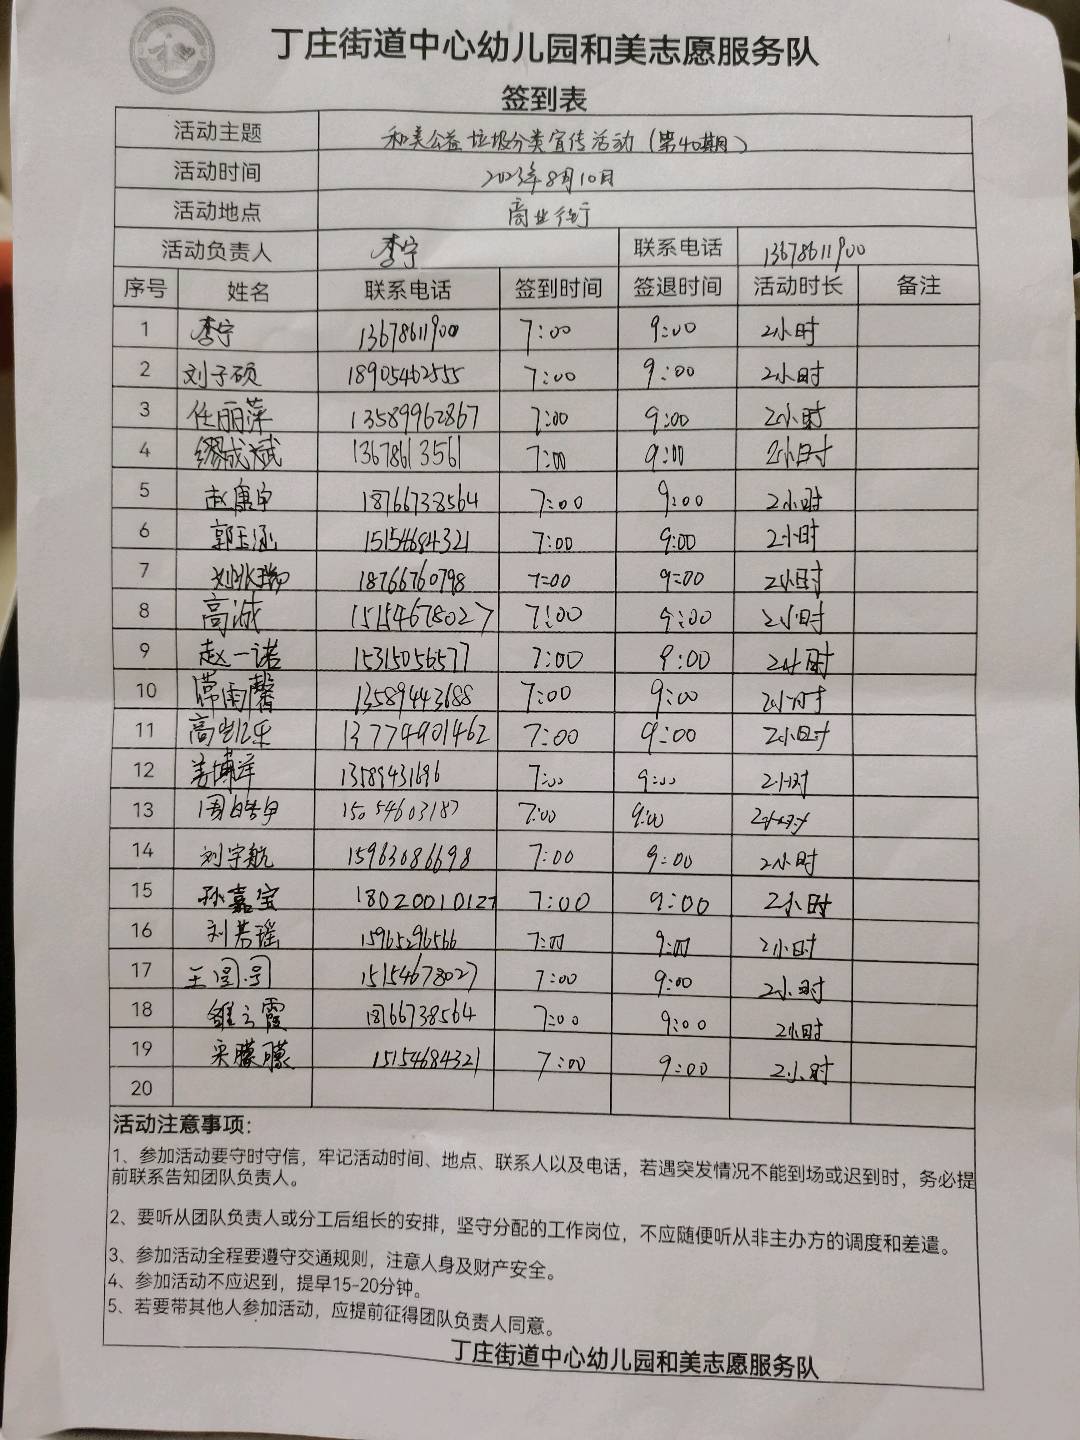 丁庄街道中心幼儿园和美志愿服务队
签到表
活动主题 和美公益垃圾分类宣传活动（第40期）
活动时间 2023年8月10日
活动地点 商业街
活动负责人 李宁 联系电话 13678611900
序号 姓名 联系电话 签到时间 签退时间 活动时长 备注
1 李宁 13678611900 7:00 9:00 2小时
2 刘子硕 18905462555 7:00 9:00 2小时
3 任丽萍 13589962867 7:00 9:00 2小时
4 缪成斌 13678613561 7:00 9:00 2小时
5 赵康宇 18766738564 7:00 9:00 2小时
6 郭玉涵 15154684321 7:00 9:00 2小时
7 18766760798 7:00 9:00 2小时
8 高诚 15154678027 7:00 9:00 2小时
9 赵一诺 15315056577 7:00 9:00 2小时
10 常雨馨 13589443688 7:00 9:00 2小时
11 13774901462 7:00 9:00 2小时
12 姜博洋 13589431696 7:00 9:00 2小时
13 15054603187 7:00 9:00 2小时
14 刘宇航 15963086698 7:00 9:00 2小时
15 孙嘉宝 18020010127 7:00 9:00 2小时
16 刘若瑶 15965296566 7:00 9:00 2小时
17 15154678027 7:00 9:00 2小时
18 18766738564 7:00 9:00 2小时
19 15154684321 7:00 9:00 2小时
20
活动注意事项：
1、参加活动要守时守信，牢记活动时间、地点、联系人以及电话，若遇突发情况不能到场或迟到时，务必提
前联系告知团队负责人。
2、要听从团队负责人或分工后组长的安排，坚守分配的工作岗位，不应随便听从非主办方的调度和差遣。
3、参加活动全程要遵守交通规则，注意人身及财产安全。
4、参加活动不应迟到，提早15-20分钟。
5、若要带其他人参加活动，应提前征得团队负责人同意。
丁庄街道中心幼儿园和美志愿服务队